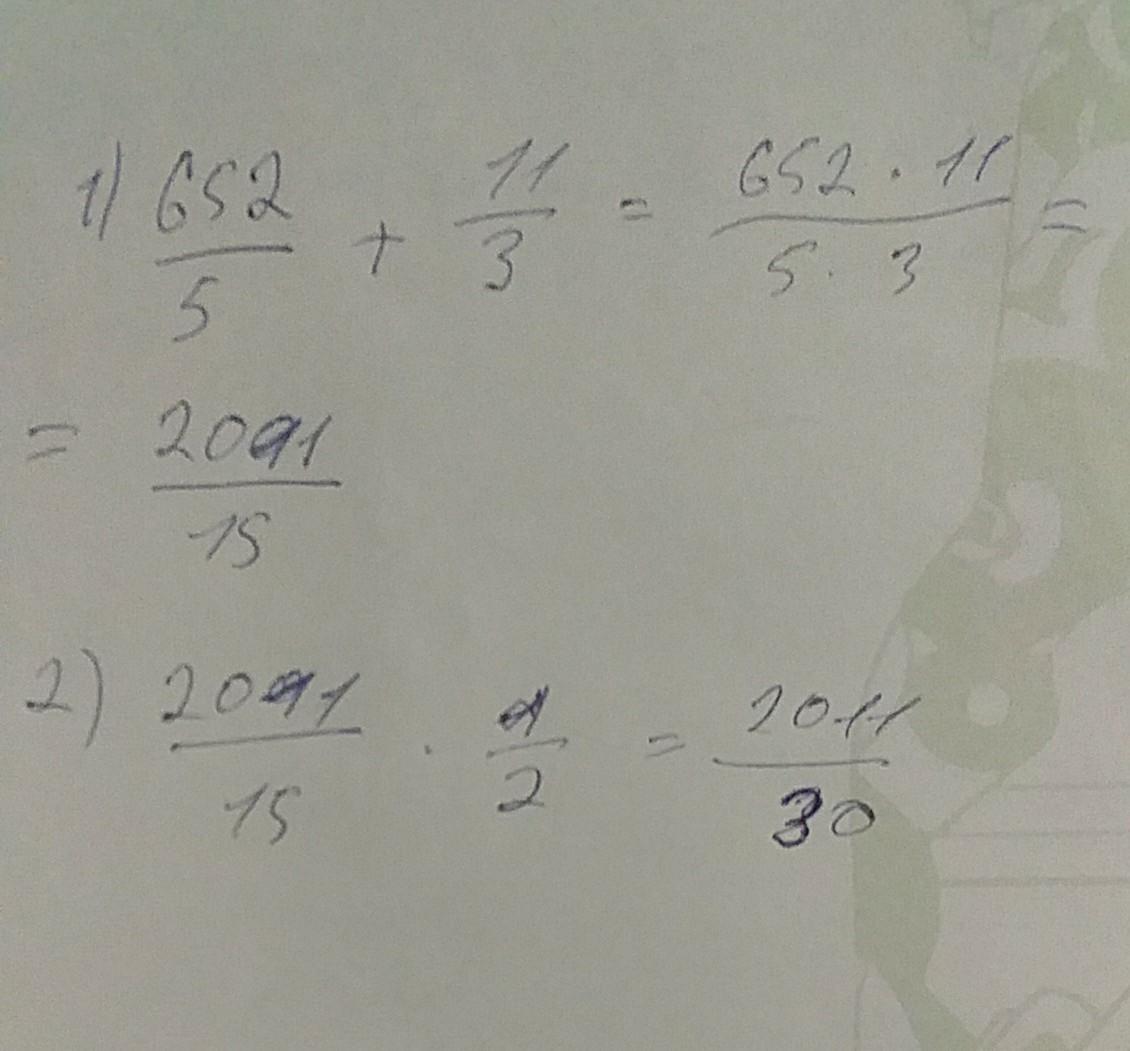 1) 652/5 + 11/3 = 652 · 11/5 · 3 =
= 2091/15
2) 2091/15 · 1/2 = 2011/30